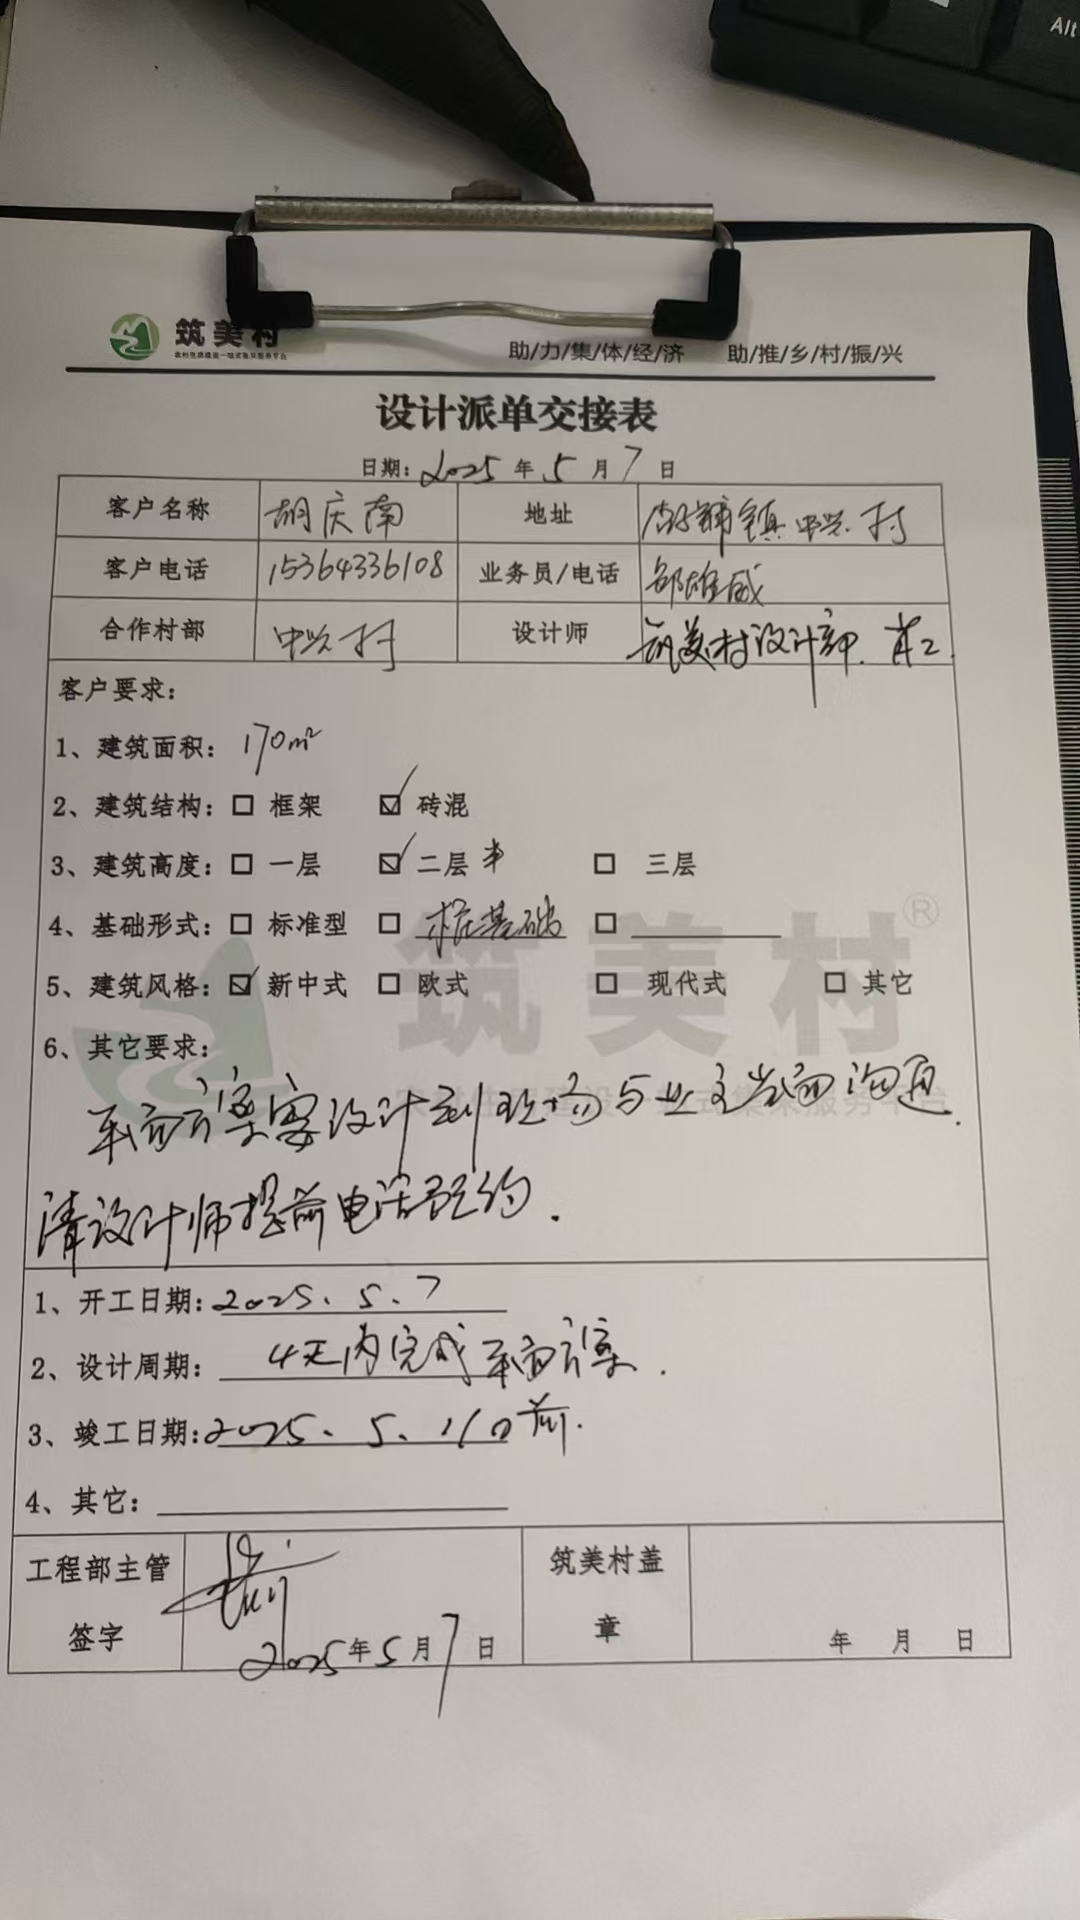 Alt
筑美村
助/力/集/体/经/济 助/推/乡/村/振/兴
设计派单交接表
日期: 2025 年 5 月 7 日
客户名称 胡庆南 地址 镇中兴村
客户电话 15364336108 业务员/电话 邹雄威
合作村部 中兴村 设计师 筑美村设计部.
客户要求:
1、建筑面积: 170m²
2、建筑结构: □ 框架 ☑ 砖混
3、建筑高度: □ 一层 ☑ 二层半 □ 三层
4、基础形式: □ 标准型 □ 桩基础 □
5、建筑风格: ☑ 新中式 □ 欧式 □ 现代式 □ 其它
筑美村®
6、其它要求:
平面方案需设计到现场与业主当面沟通.
请设计师提前电话预约.
1、开工日期: 2025.5.7
2、设计周期: 4天内完成平面方案.
3、竣工日期: 2025.5.11日前.
4、其它:
工程部主管 筑美村盖
签字 2025年5月7日 章 年 月 日